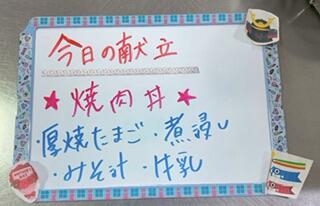 今日の献立
★焼肉丼★
・厚焼たまご・煮浸し
・みそ汁・牛乳